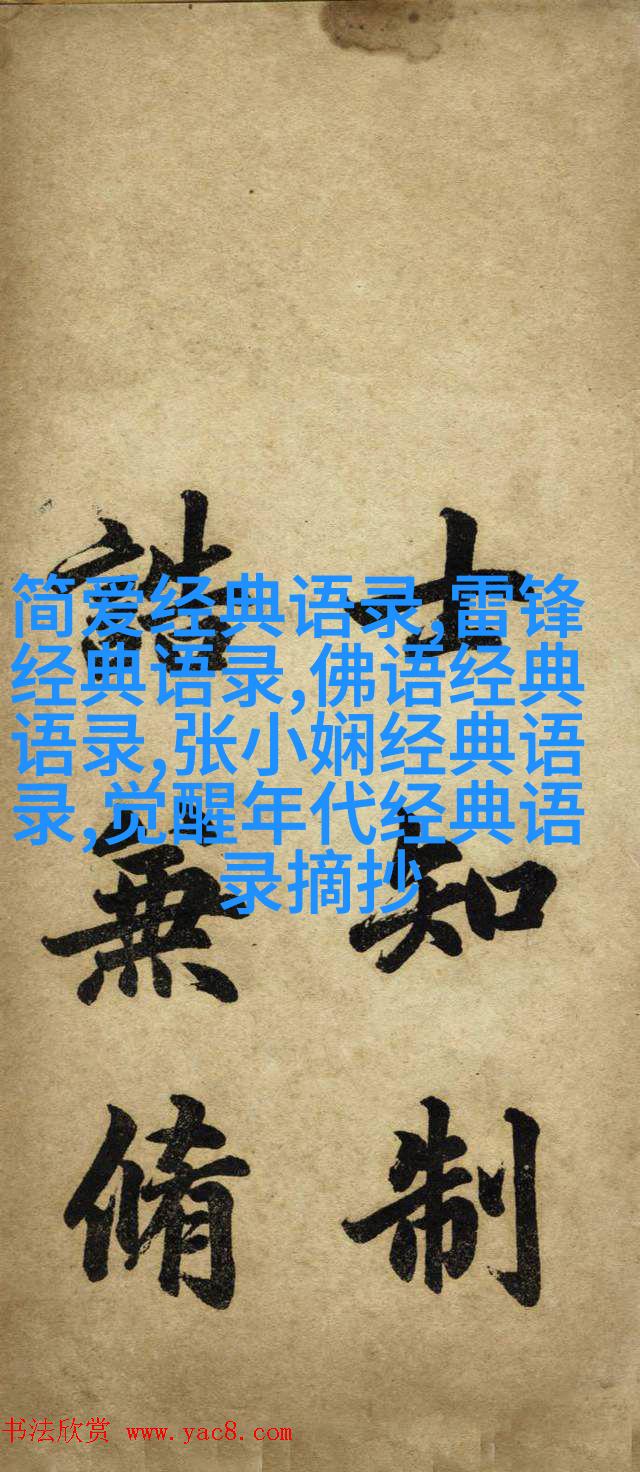 简爱经典语录,雷锋
经典语录,佛语经典
语录,张小娴经典语
录,觉醒年代经典语
录摘抄
士知制
誥兼脩
书法欣赏 www.yac8.com